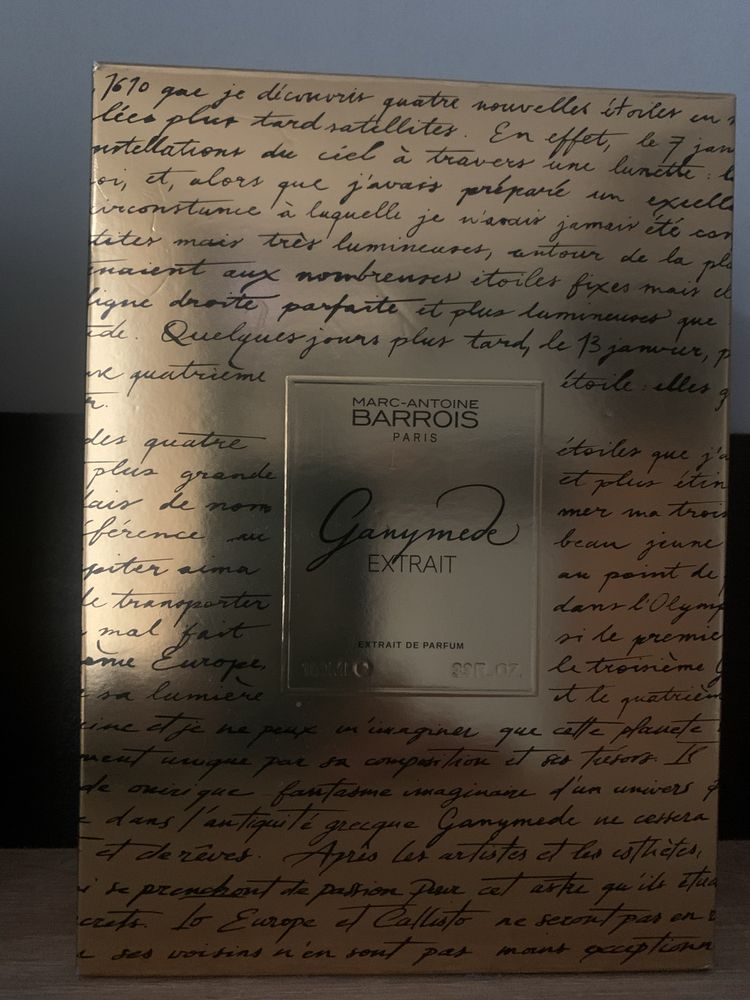 1610 que je découvris quatre nouvelles étoiles en
lées plus tard satellites. En effet, le 7 jan
nstellations du ciel à travers une lunette :
oi, et, alors que j'avais préparé un excelle
irconstance à laquelle je n'avais jamais été con
tites mais très lumineuses, autour de la pla
naient aux nombreuses étoiles fixes mais
ligne droite parfaite et plus lumineuses que
de. Quelques jours plus tard, le 13 janvier, p
quatrième étoile : elles
r.
MARC-ANTOINE
BARROIS
PARIS
des quatre étoiles que j'a
plus grande et plus étin
ais de nom mer ma trois
férence au beau jeune
piter aima au point de
le transporter dans l'Olymp
mal fait si le premie
ème Europe, le troisième G
sa lumière et le quatrièm
Ganymede
EXTRAIT
EXTRAIT DE PARFUM
100ML 3.3FL.OZ.
cine et je ne peux m'imaginer que cette planète
ment unique par sa composition et ses trésors. Il
de onirique fantasme imaginaire d'un univers
dans l'antiquité grecque Ganymede ne cessera
et de rêves. Après les artistes et les esthètes,
i se prenchent de passion pour cet astre qu'ils étu
crets. Io Europe et Callisto ne seront pas en r
ses voisins n'en sont pas moins exceptionn